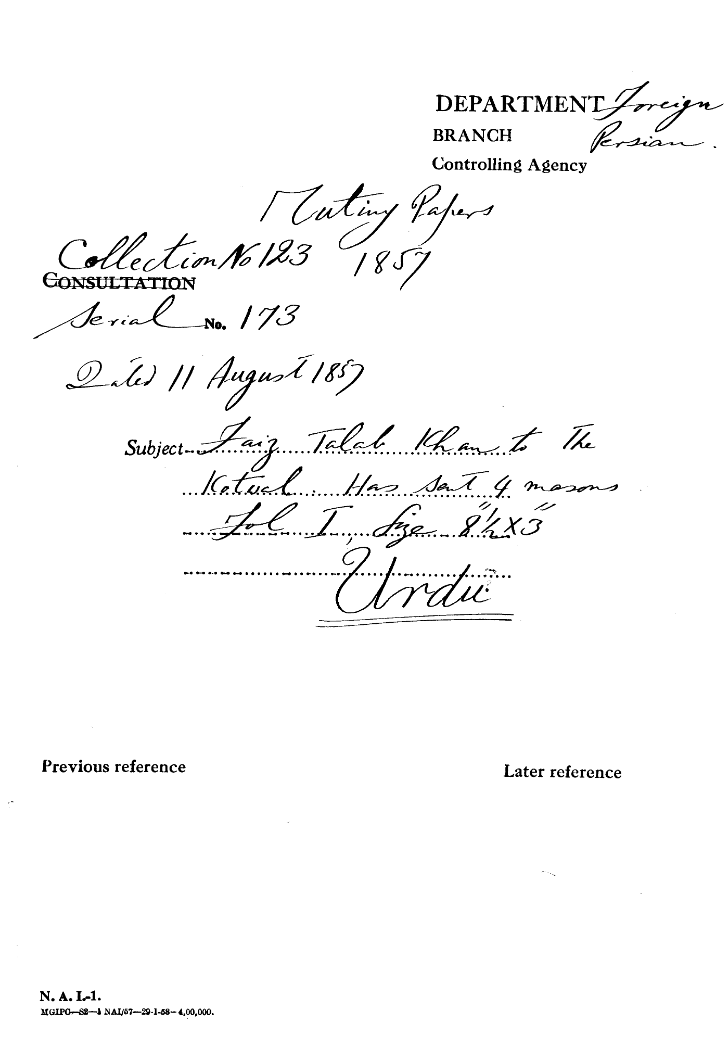 DEPARTMENT Foreign
BRANCH Persian.
Controlling Agency
Mutiny Papers
Collection No 123 1857
CONSULTATION
Serial No. 173
Dated 11 August 1857
Subject Faiz Talab Khan to The
Kotwal. Has sent 4 masons
Fol I, Size 8½" X 3"
Urdu
Previous reference
Later reference
N. A. I.-1.
MGIPC—S2—1 NAI/57—29-1-58—4,00,000.